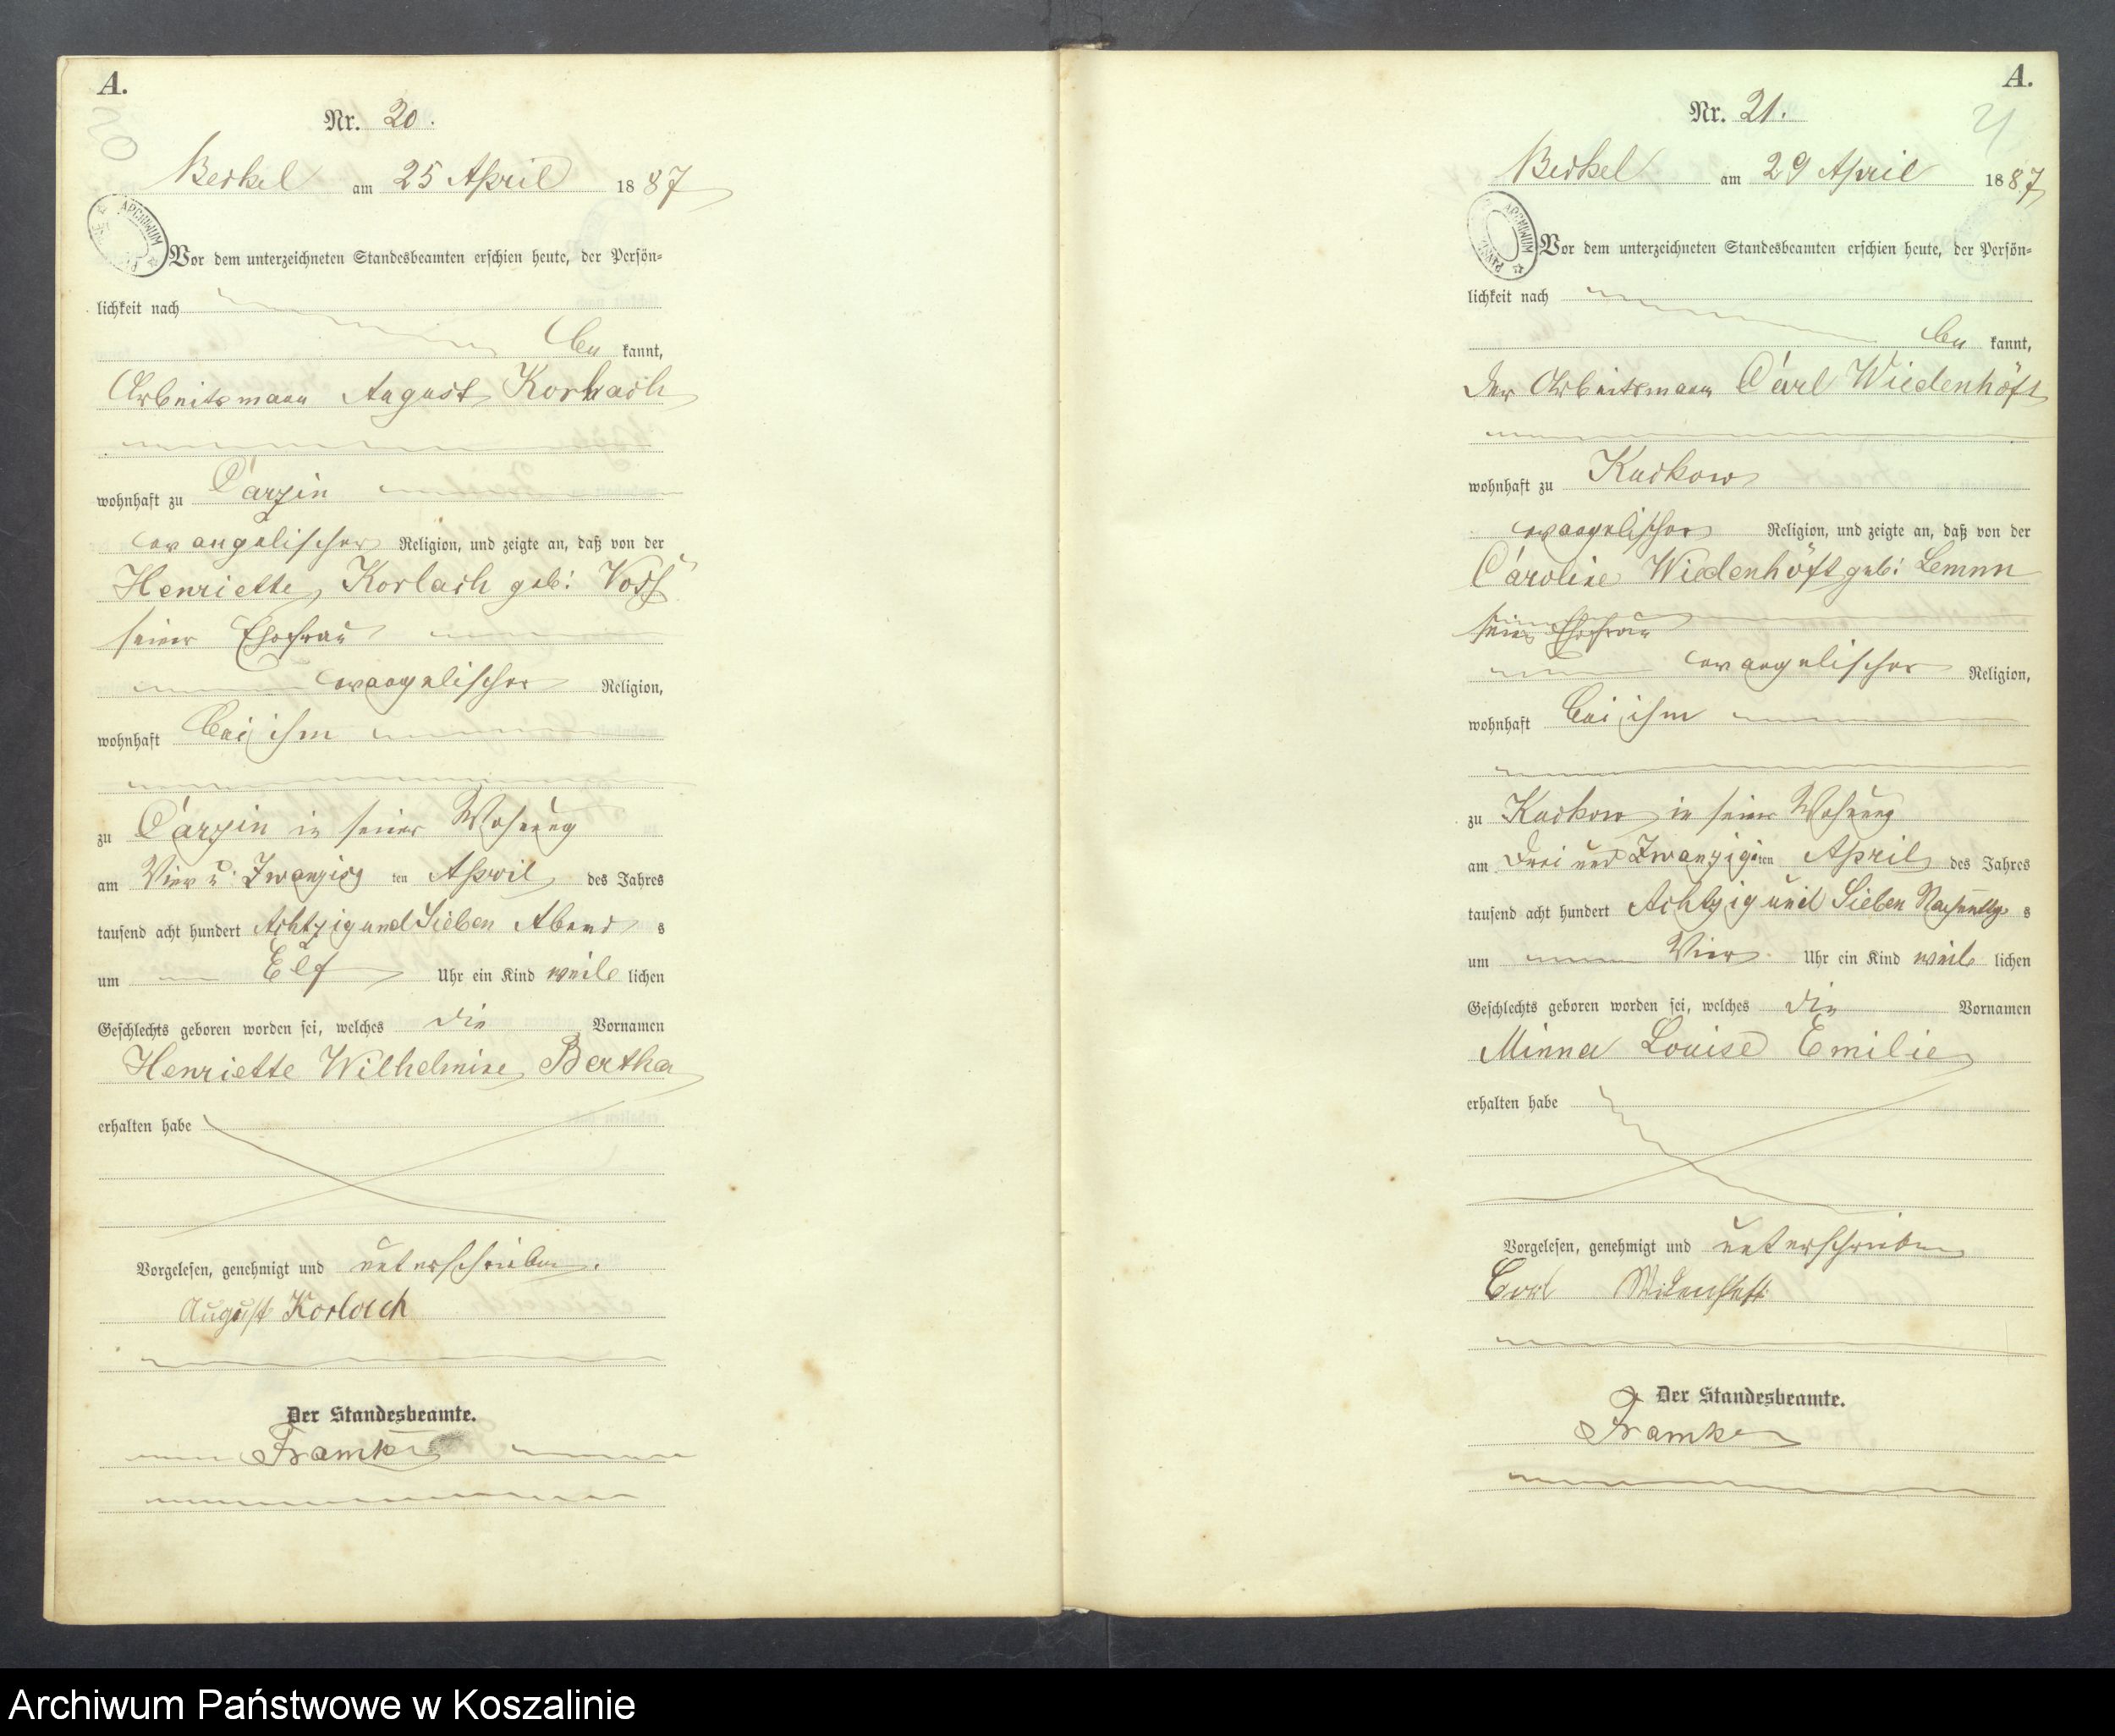 A.
Nr. 20.
Beckel am 25 April 1887
ARCHIWUM
Vor dem unterzeichneten Standesbeamten erschien heute, der Persön-
lichkeit nach
be kannt,
Arbeitsmann August Korbach
wohnhaft zu Carzin
evangelischer Religion, und zeigte an, daß von der
Henriette Korlach geb: Voss
seiner Ehefrau
evangelischer Religion,
wohnhaft bei ihm
zu Carzin in seiner Wohnung
am Vier u. Zwanzig ten April des Jahres
tausend acht hundert Achtzig und Sieben Abend s
um Elf Uhr ein Kind weib lichen
Geschlechts geboren worden sei, welches die Vornamen
Henriette Wilhelmine Bertha
erhalten habe
Vorgelesen, genehmigt und unterschrieben.
August Korlach
Der Standesbeamte.
Framke
A.
21
Nr. 21.
Beckel am 29 April 1887
ARCHIWUM
Vor dem unterzeichneten Standesbeamten erschien heute, der Persön-
lichkeit nach
be kannt,
Der Arbeitsmann Carl Wiedenhöft
wohnhaft zu Kuckow
evangelischer Religion, und zeigte an, daß von der
Caroline Wiedenhöft geb:
seiner Ehefrau
evangelischer Religion,
wohnhaft bei ihm
zu Kuckow in seiner Wohnung
am Drei und Zwanzigsten April des Jahres
tausend acht hundert Achtzig und Sieben Nachmittag s
um Vier Uhr ein Kind weib lichen
Geschlechts geboren worden sei, welches die Vornamen
Minna Louise Emilie
erhalten habe
Vorgelesen, genehmigt und unterschrieben
Carl
Der Standesbeamte.
Framke
Archiwum Państwowe w Koszalinie